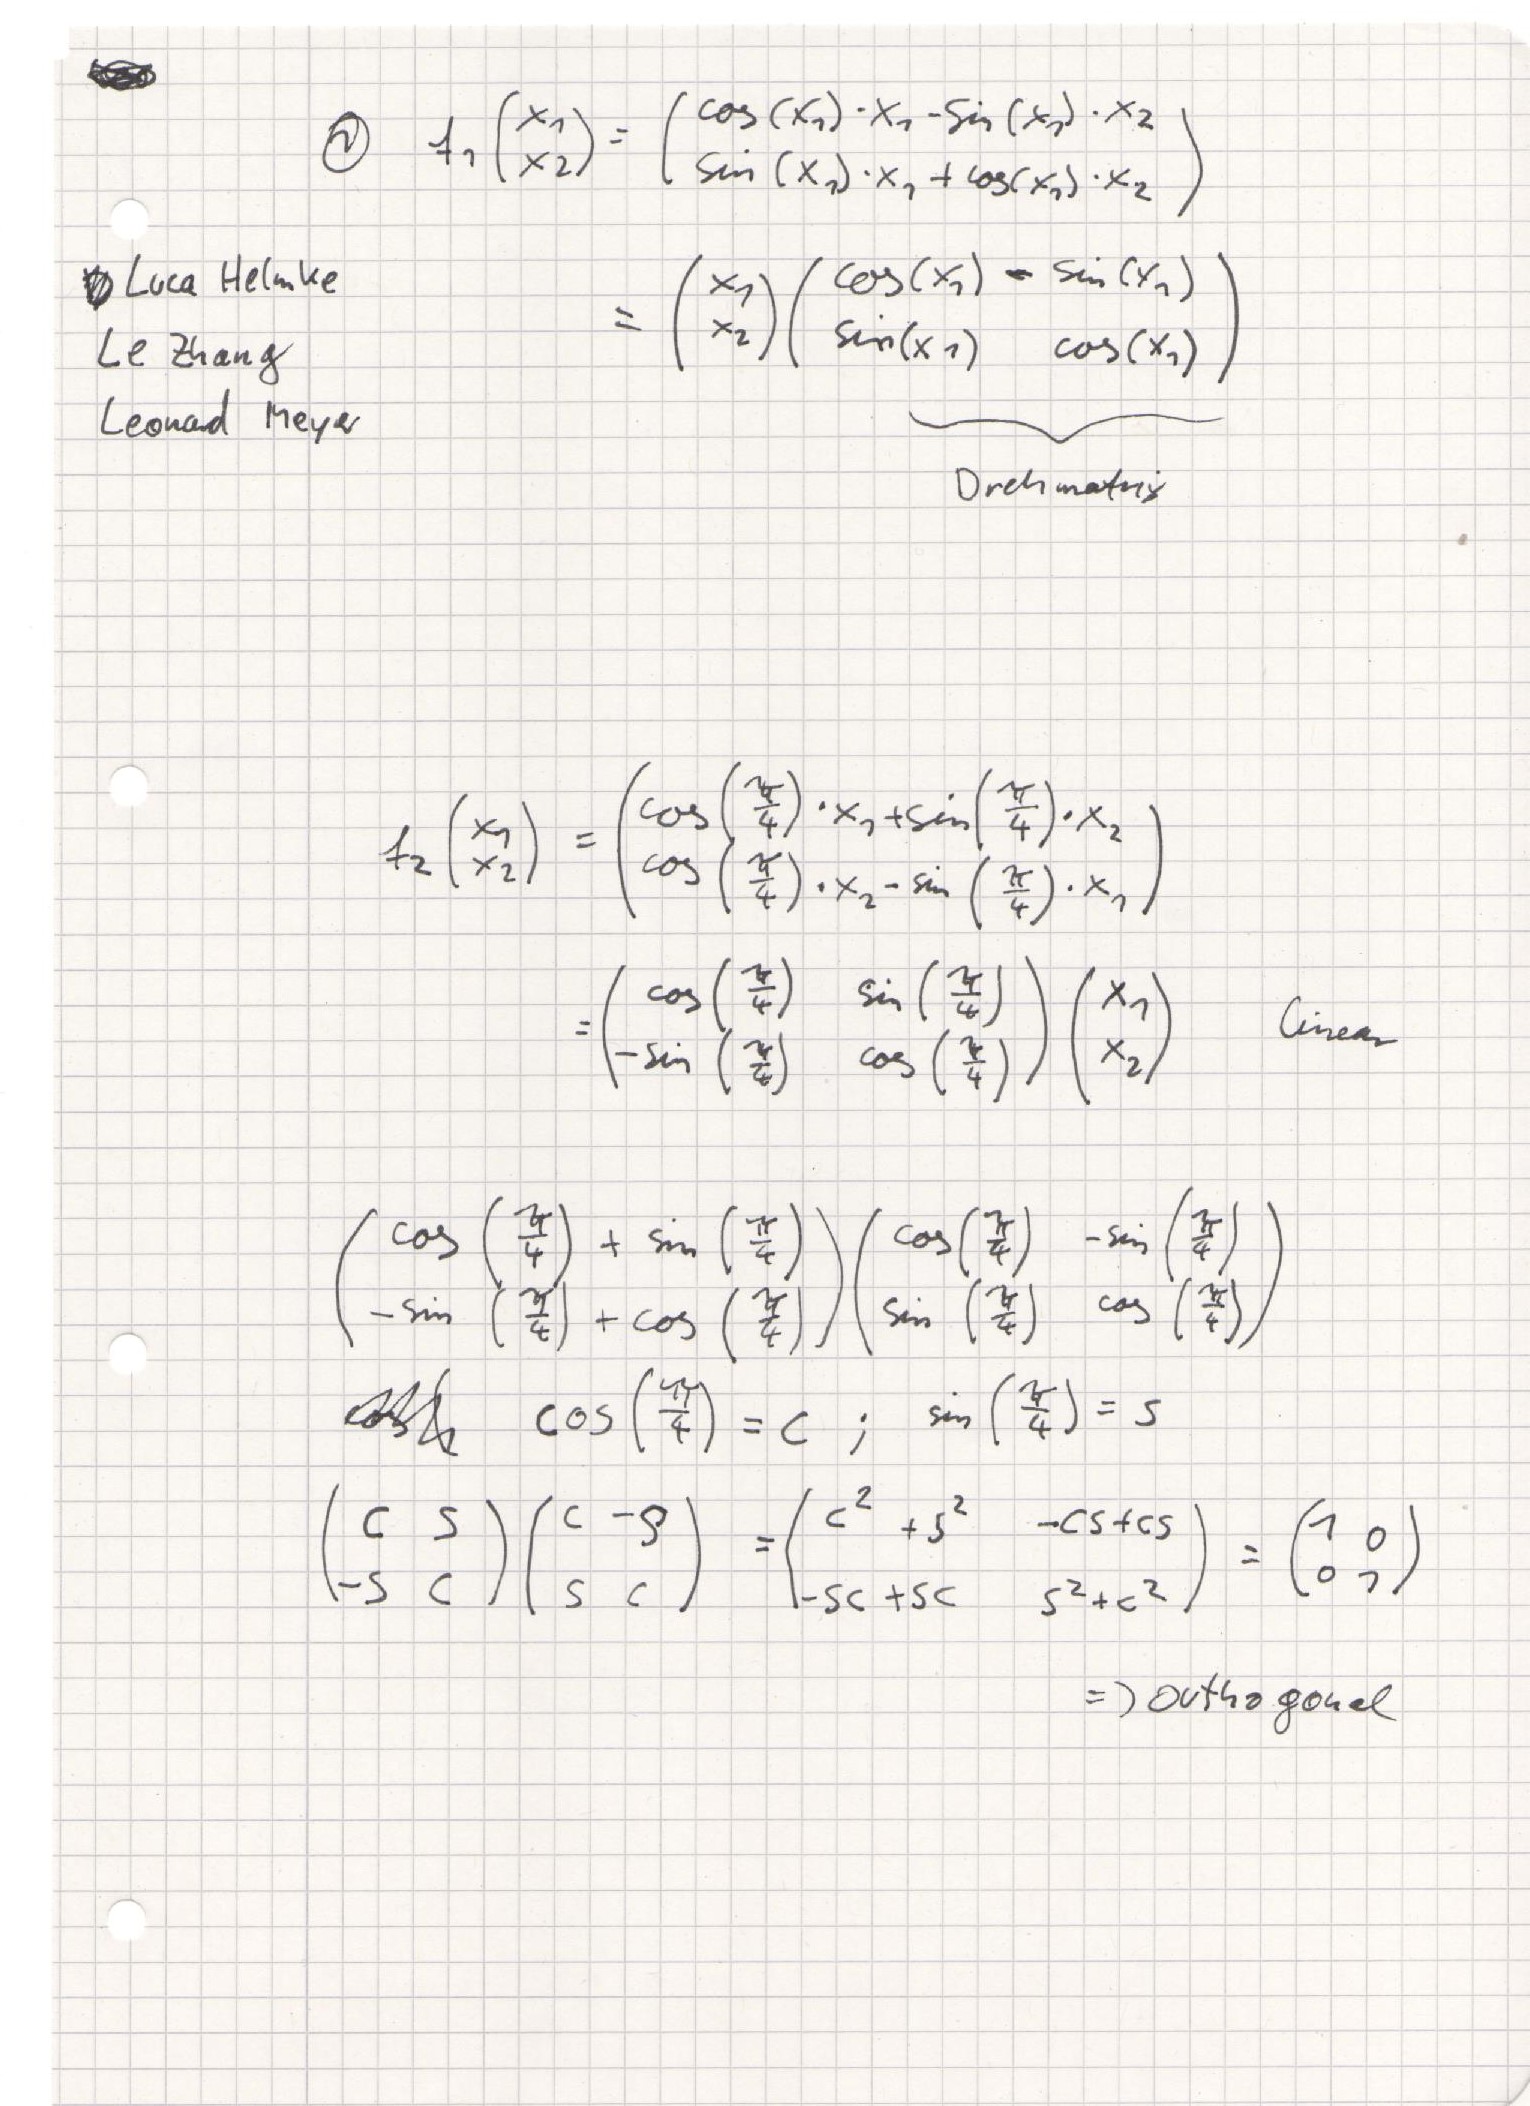 ② f₁ (x₁ x₂) = ( cos(x₁)·x₁ - sin(x₁)·x₂
sin(x₁)·x₁ + cos(x₁)·x₂ )
Luca Helmke
Le Zhang
Leonard Meyer
= (x₁ x₂) ( cos(x₁) - sin(x₁)
sin(x₁) cos(x₁) )
Drehmatrix
f₂ (x₁ x₂) = ( cos(π/4)·x₁ + sin(π/4)·x₂
cos(π/4)·x₂ - sin(π/4)·x₁ )
= ( cos(π/4) sin(π/4) (x₁ linear
-sin(π/4) cos(π/4) ) x₂)
( cos(π/4) + sin(π/4) ) ( cos(π/4) -sin(π/4)
-sin(π/4) + cos(π/4) ) sin(π/4) cos(π/4) )
cos(π/4) = c ; sin(π/4) = s
( c s ) ( c -s ) = ( c² + s² -cs+cs ) = ( 1 0
-s c ) s c ) -sc+sc s²+c² ) 0 1 )
=> orthogonal